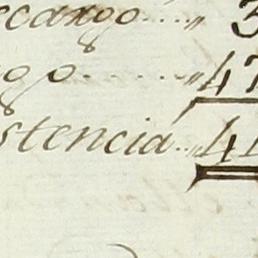 ecargo....,, 3
go.......,,47
stencia..,,41